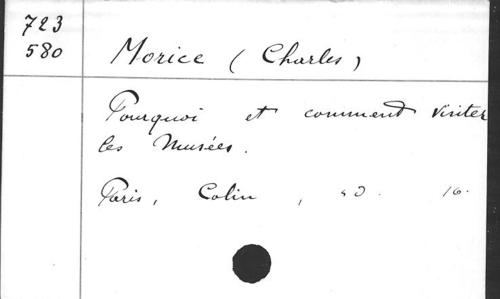 723
580
Morice (Charles)
Pourquoi et comment visiter
les Musées.
Paris, Colin, sd. 16.